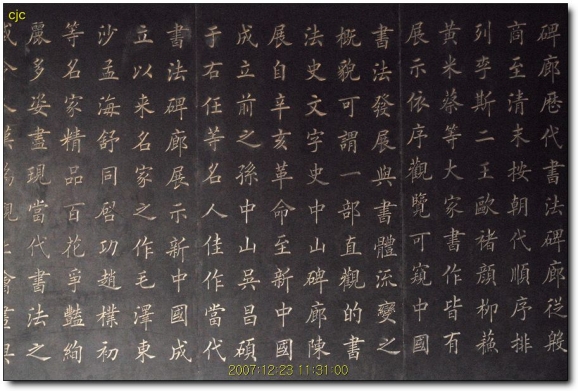 cjc
碑廊歷代書法碑廊從殷
商至清末按朝代順序排
列李斯二王歐褚顏柳蘇
黃米蔡等大家書作皆有
展示依序觀覽可窺中國
書法發展與書體流變之
概貌可謂一部直觀的書
法史文字史中山碑廊陳
展自辛亥革命至新中國
成立前之孫中山吳昌碩
于右任等名人佳作當代
書法碑廊展示新中國成
立以來名家之作毛澤東
沙孟海舒同啓功趙樸初
等名家精品百花爭豔絢
麗多姿盡現當代書法之
2007:12:23 11:31:00